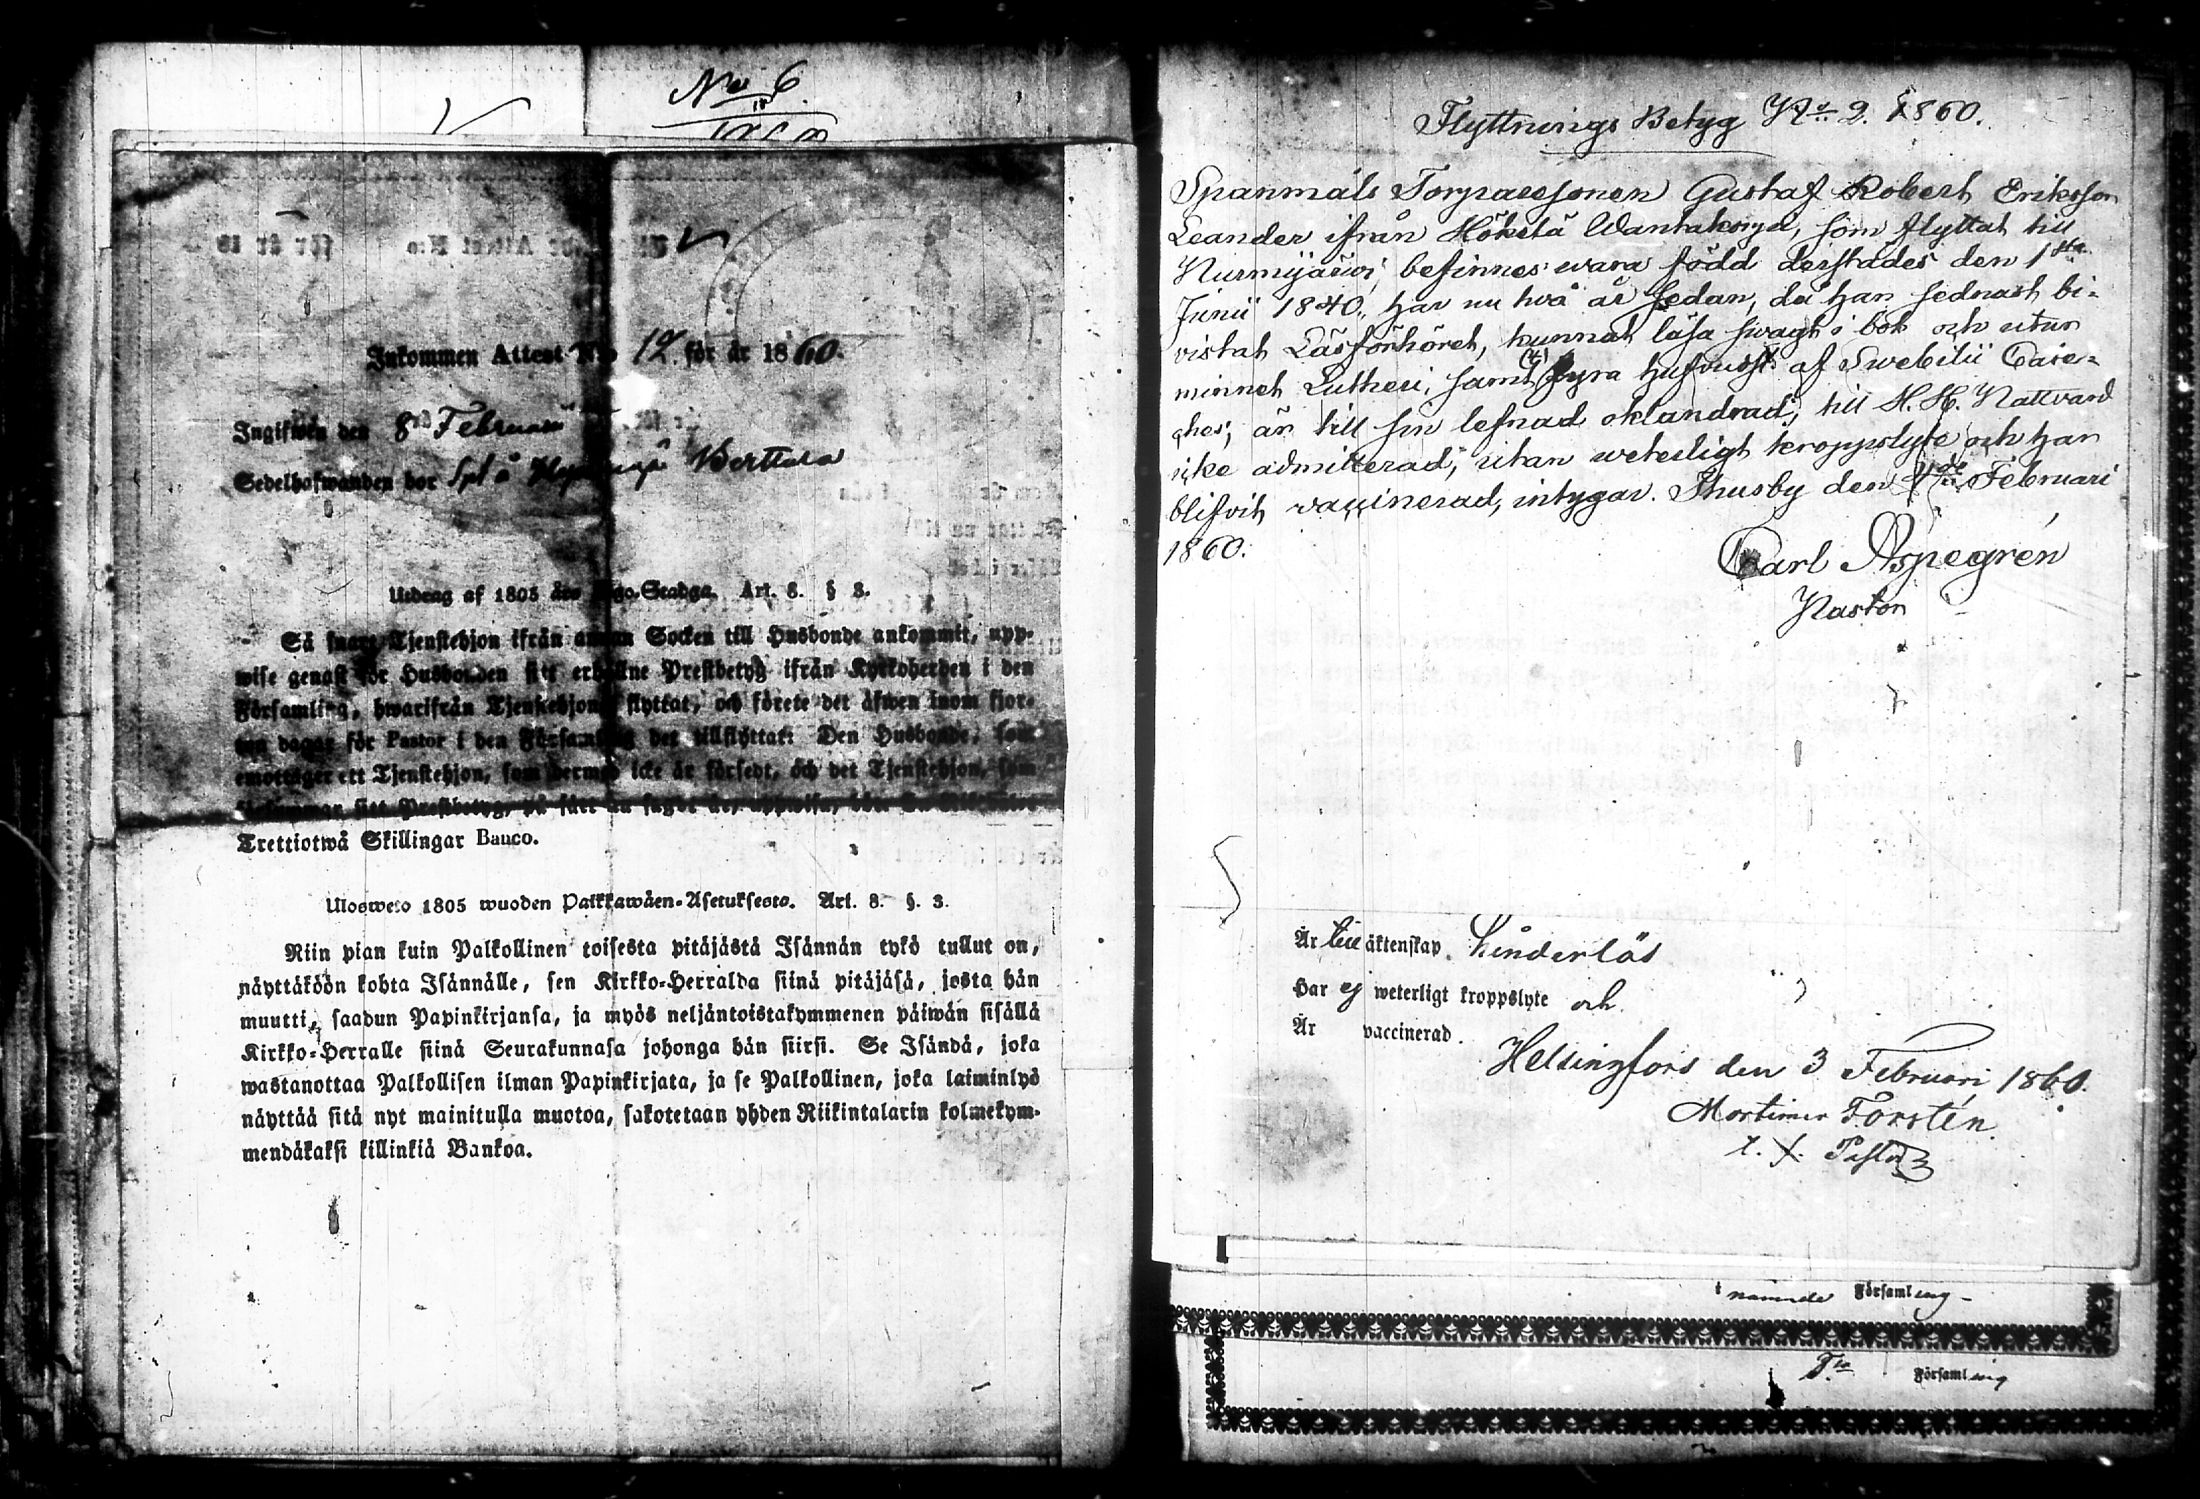 No 6.
Inkommen Attest N:o 12 för år 1860.
Ingifwen den 8de Februari
Sedelhafwanden bor Spl å
Utdrag af 1805 års Lego-Stadga. Art. 8. § 3.
Så snart Tjenstehjon ifrån annan Socken till Husbonde ankommit, upp-
wise genast för Husbonden sitt erhållne Prestbetyg ifrån Kyrkoherden i den
Församling, hwarifrån Tjenstehjonet flyttat, och förete det äfwen inom fjor-
ton dagar för Pastor i den Församling det tillflyttat: Den Husbonde, som
emottager ett Tjenstehjon, som dermed icke är försedt, och det Tjenstehjon, som
sitt Prestbetyg, på sätt nu sagdt är, uppwisa,
Trettiotwå Skillingar Banco.
Ulosweto 1805 wuoden Palkkawäen-Asetuksesta. Art. 8. §. 3.
Niin pian kuin Palkollinen toisesta pitäjästä Isännän tykö tullut on,
näyttäköön kohta Isännälle, sen Kirkko-Herralda siinä pitäjäsä, josta hän
muutti, saadun Papinkirjansa, ja myös neljäntoistakymmenen päiwän sisällä
Kirkko-Herralle siinä Seurakunnasa johonga hän siirsi. Se Isändä, joka
wastanottaa Palkollisen ilman Papinkirjata, ja se Palkollinen, joka laiminlyö
näyttää sitä nyt mainitulla muotoa, sakotetaan yhden Riikintalarin kolmekym-
mendäkaksi killinkiä Bankoa.
Flyttnings Betyg No 2. 1860.
Spanmåls Torparesonen Gustaf Robert Eriksson
Leander ifrån Hökstä Wantakoski, som flyttat till
Nurmijärvi, befinnes wara född derstädes den 1sta
Junii 1840, har nu två år sedan, då han sednast bi-
vistat Läsförhöret, kunnat läsa swagt i bok och utur
minnet Lutheri, samt (4) fyra hufvudst. af Swebilii Catec-
hes; är till sin lefnad oklandrad; till H. H. Nattvard
icke admitterad; utan weterligt kroppslyte och har
blifvit vaccinerad, intygar. Thusby den 4de Februari
1860.
Carl Aspegrén
Pastor
Är till äktenskap hinderlös
Har ej weterligt kroppslyte och
Är vaccinerad.
Helsingfors den 3 Februari 1860.
Mortimer Forstén.
t. f. Pastor
i nämnde Församling
Församling